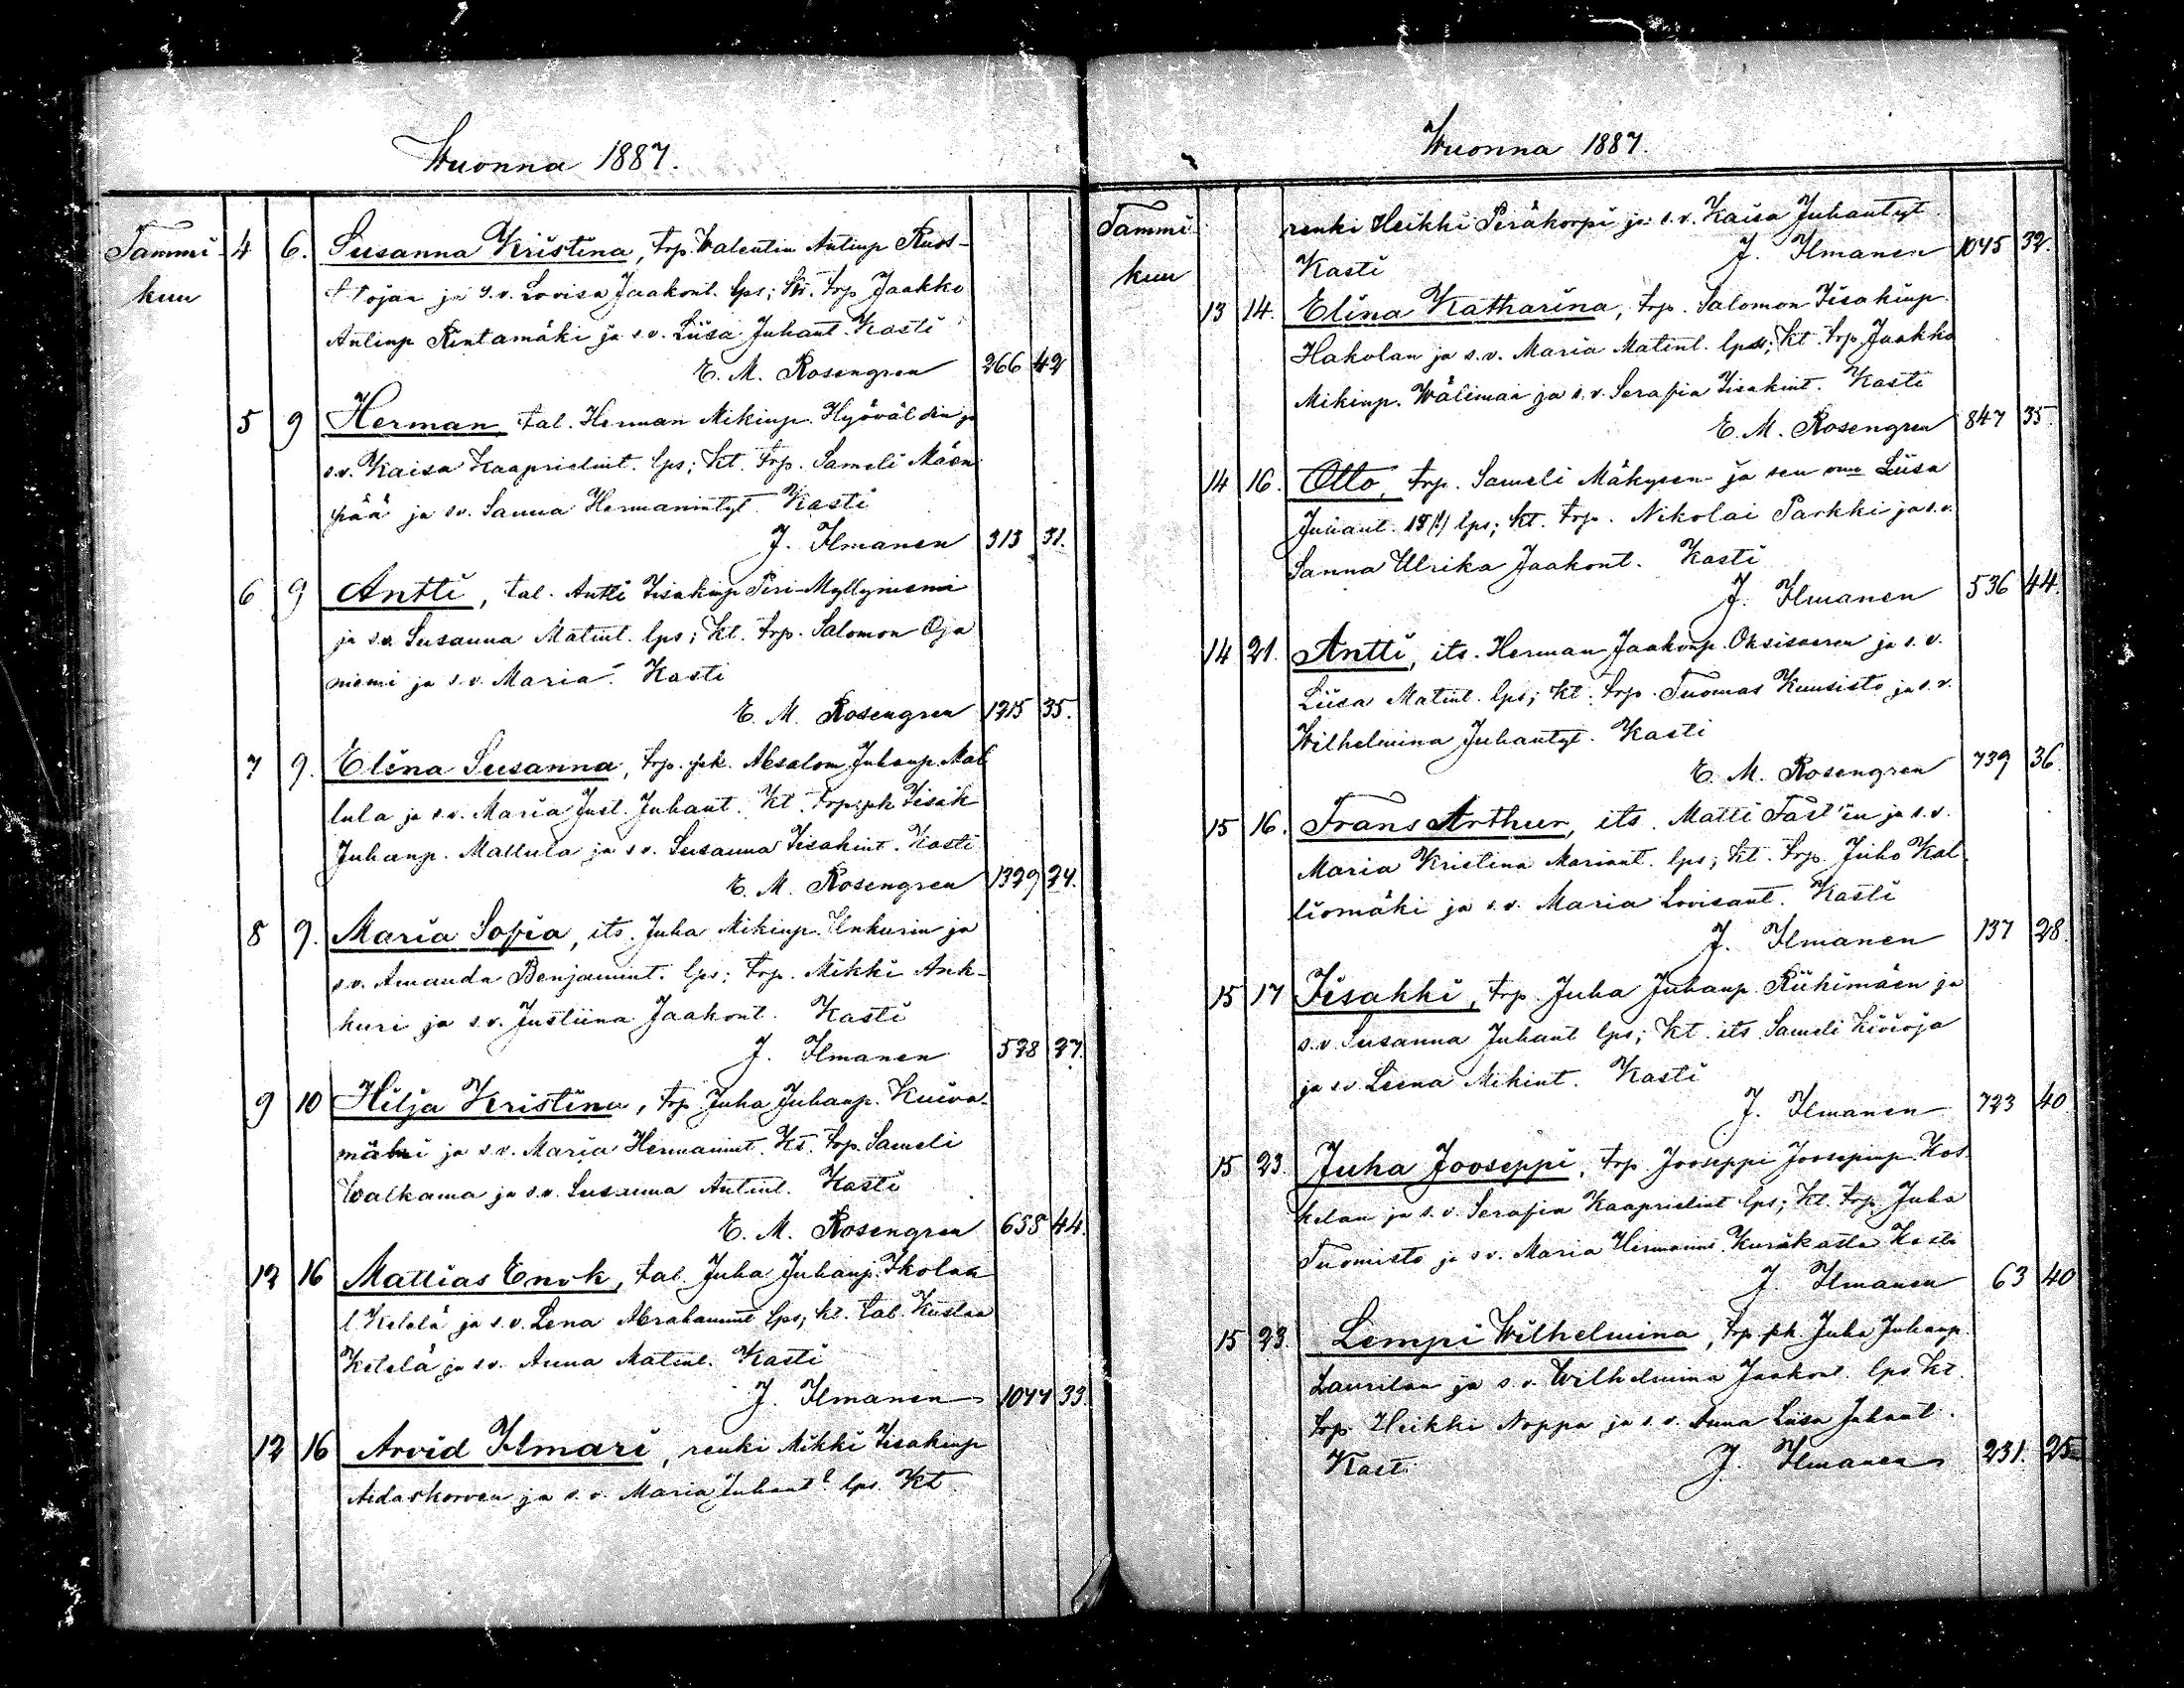 Wuonna 1887.
Tammi- 4 6. Susanna Kristina, trp. Walentin Antinp Ruos-
kuu ojan ja s.v. Lovisa Jaakont. lps; Kt. trp Jaakko
Antinp Rintamäki ja s.v. Liisa Juhant. Kasti
E. M. Rosengren 266 42
5 9 Herman, tal. Herman Mikinp. Hyövältin ja
s.v. Kaisa Kaaprielint. lps; Kt. trp. Sameli Mäen
pää ja s.v. Sanna Hermannintyt. Kasti
J. Ilmanen 313 31.
6 9 Antti, tal. Antti Iisakinp Piri-Myllyniemi
ja s.v. Susanna Matint. lps; Kt. trp. Salomon Oja
niemi ja s.v. Maria. Kasti
E. M. Rosengren 1215 35.
7 9. Elina Susanna, trp. pk. Absalom Juhanp. Mal
lula ja s.v. Maria Just. Juhant. Kt. trp. pk Iisak
Juhanp. Mallula ja s.v. Susanna Iisakint. Kasti
E. M. Rosengren 1329 24.
8 9. Maria Sofia, its. Juha Mikinp. Unkurin ja
s.v. Amanda Benjamint. lps; trp. Mikki Ank-
huri ja s.v. Justiina Jaakont. Kasti
J. Ilmanen 528 27.
9 10 Hilja Kristina, trp Juha Juhanp. Kuiva-
mäki ja s.v. Maria Hermannint. Kt. trp. Sameli
Walkama ja s.v. Susanna Antint. Kasti
E. M. Rosengren 658 44.
12 16 Mattias Enok, tal. Juha Juhanp. Ikolan
l. Ketelä ja s.v. Lena Abrahamint lps; kt. tal. Kustaa
Ketelä ja s.v. Anna Matint. Kasti
J. Ilmanen 1044 33.
12 16 Arvid Ilmari, renki Mikki Iisakinp
Aidaskorven ja s.v. Maria Juhant. lps. Kt.
Wuonna 1887.
Tammi- renki Heikki Peräkorpi ja s.v. Kaisa Juhantyt
kuu Kasti J. Ilmanen 1045 32.
13 14. Elina Katharina, trp. Salomon Iisakinp.
Hakolan ja s.v. Maria Matint. lps; Kt. trp. Jaakko
Mikinp. Wälimai ja s.v. Serafia Iisakint. Kasti
E. M. Rosengren 847 35.
14 16. Otto, trp. Sameli Mäkysen ja sen vmo Liisa
Juhant. lps; kt. trp. Nikolai Parkki ja s.v.
Sanna Ulrika Jaakont. Kasti
J. Ilmanen 536 44.
14 21. Antti, its. Herman Jaakonp. Oksisaaren ja s.v.
Liisa Matint. lps; Kt. trp. Tuomas Kuusisto ja s.v.
Wilhelmina Juhantyt. Kasti
E. M. Rosengren 739 36.
15 16. Frans Arthur, its. Matti Fast'in ja s.v.
Maria Kristina Mariant. lps; Kt. trp. Juho Kal
liomäki ja s.v. Maria Lovisant. Kasti
J. Ilmanen 137 28.
15 17 Iisakki, trp. Juha Juhanp. Riihimäen ja
s.v. Susanna Juhant lps; Kt. its Sameli Kivioja
ja s.v. Leena Mikint. Kasti
J. Ilmanen 723 40
15 23. Juha Jooseppi, trp. Jooseppi Joosepinp. Kos
kelan ja s.v. Serafia Kaaprielint lps; Kt. trp. Juha
Tuomisto ja s.v. Maria Hermanni Kasti
J. Ilmanen 63 40
15 23. Lempi Wilhelmina, trp. pk. Juha Juhanp.
Laurilan ja s.v. Wilhelmina Jaakont. lps Kt.
trp. Heikki Noppa ja s.v. Anna Liisa Juhant.
Kasti J. Ilmanen 231. 25